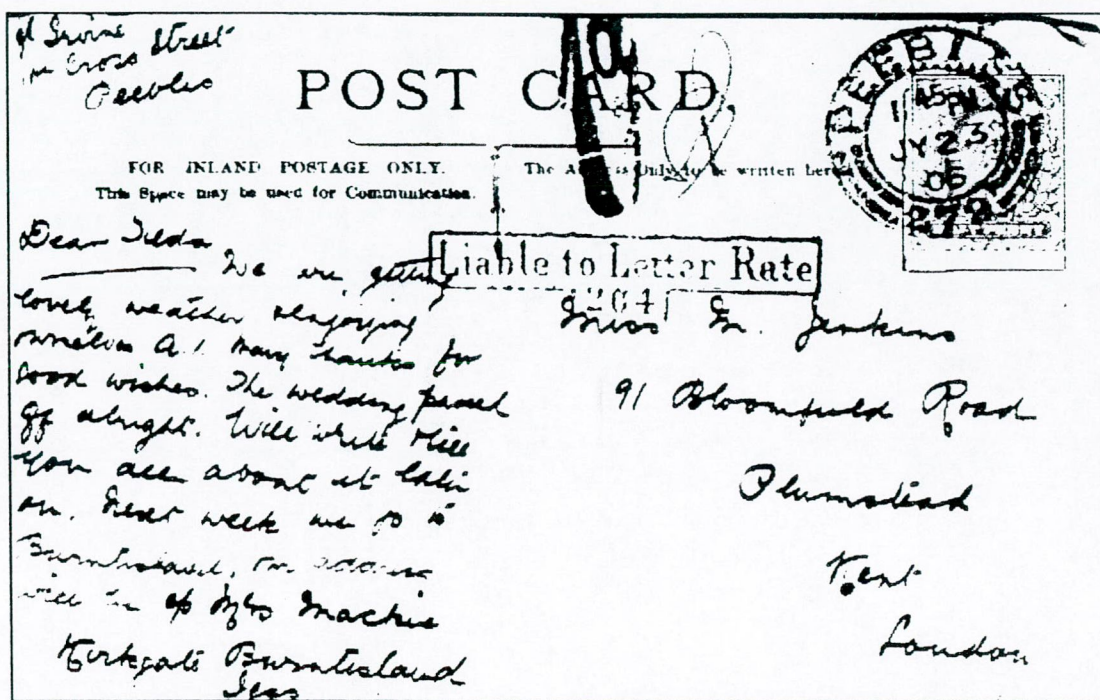 Irvine
Cross Street
Peebles
POST CARD.
FOR INLAND POSTAGE ONLY.
This Space may be used for Communication.
The Address Only to be written here
PEEBLES
JY 23
05
272
Liable to Letter Rate
Dear Tilda
We are getting
lovely weather & enjoying
ourselves A.1. Many thanks for
good wishes. The wedding passed
off alright. Will write & tell
you all about it later
on. Next week we go to
Burntisland, our address
will be c/o Mrs Mackie
Kirkgate Burntisland
Jess
Miss M. Jenkins
91 Bloomfield Road
Plumstead
Kent
London